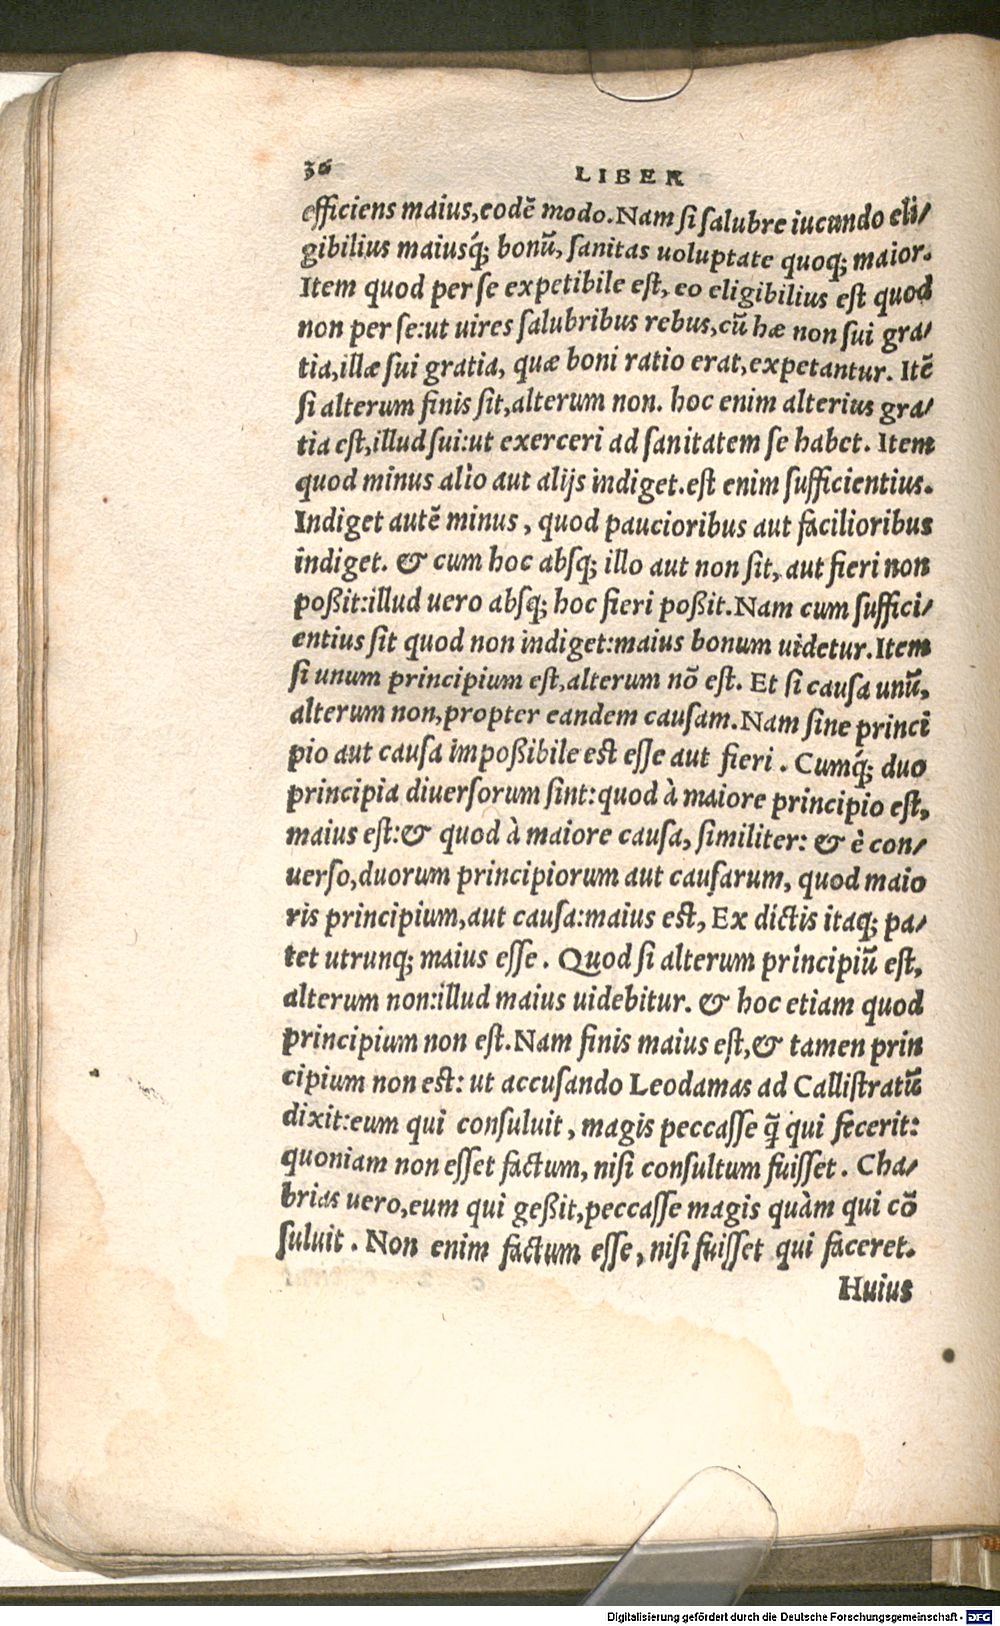 36 LIBER
efficiens maius, eodē modo. Nam si salubre iucundo eli/
gibilius maiusq́; bonū, sanitas uoluptate quoq; maior.
Item quod per se expetibile est, eo eligibilius est quod
non per se: ut uires salubribus rebus, cū hæ non sui gra/
tia, illæ sui gratia, quæ boni ratio erat, expetantur. Itē
si alterum finis sit, alterum non. hoc enim alterius gra/
tia est, illud sui: ut exerceri ad sanitatem se habet. Item
quod minus alio aut alijs indiget. est enim sufficientius.
Indiget autē minus, quod paucioribus aut facilioribus
indiget. & cum hoc absq; illo aut non sit, aut fieri non
poßit: illud uero absq; hoc fieri poßit. Nam cum suffici/
entius sit quod non indiget: maius bonum uidetur. Item
si unum principium est, alterum nō est. Et si causa unū,
alterum non, propter eandem causam. Nam sine princi
pio aut causa impoßibile est esse aut fieri. Cumq́; duo
principia diuersorum sint: quod à maiore principio est,
maius est: & quod à maiore causa, similiter: & è con/
uerso, duorum principiorum aut causarum, quod maio
ris principium, aut causa: maius est, Ex dictis itaq; pa/
tet utrunq; maius esse. Quod si alterum principiū est,
alterum non: illud maius uidebitur. & hoc etiam quod
principium non est. Nam finis maius est, & tamen prin
cipium non est: ut accusando Leodamas ad Callistratū
dixit: eum qui consuluit, magis peccasse q̄ qui fecerit:
quoniam non esset factum, nisi consultum fuisset. Cha/
brias uero, eum qui geßit, peccasse magis quàm qui cō
suluit. Non enim factum esse, nisi fuisset qui faceret.
Huius
Digitalisierung gefördert durch die Deutsche Forschungsgemeinschaft - DFG